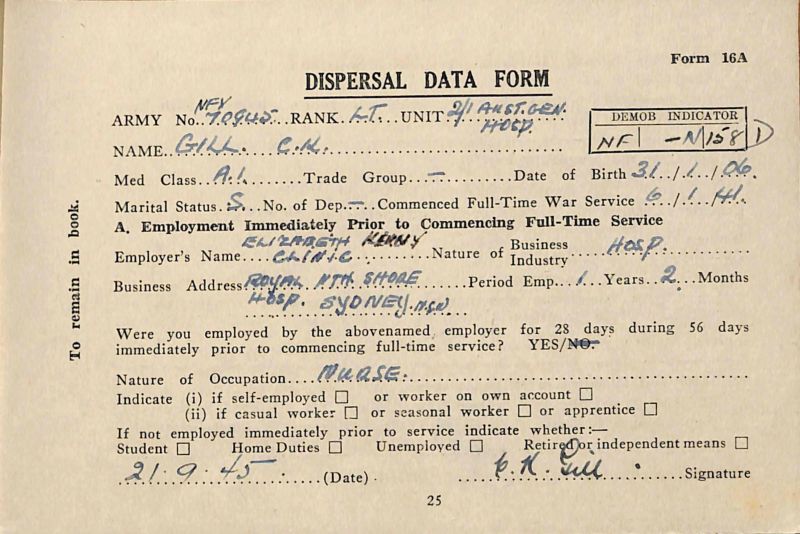 Form 16A
DISPERSAL DATA FORM
ARMY No. NFX 70945 RANK. LT. UNIT 2/1 AUST. GEN. HOSP.
DEMOB INDICATOR
NF | -N | 158 | D
NAME. GILL. C.K.
Med Class. A.1. Trade Group. — Date of Birth 31/1/06.
Marital Status. S. No. of Dep. — Commenced Full-Time War Service 6/1/41.
A. Employment Immediately Prior to Commencing Full-Time Service
Employer's Name ELIZABETH KENNY CLINIC Nature of Business Industry HOSP.
Business Address ROYAL NTH. SHORE HOSP. SYDNEY. NSW Period Emp. 1 Years 2 Months
Were you employed by the abovenamed employer for 28 days during 56 days
immediately prior to commencing full-time service? YES/NO.
Nature of Occupation NURSE.
Indicate (i) if self-employed ☐ or worker on own account ☐
(ii) if casual worker ☐ or seasonal worker ☐ or apprentice ☐
If not employed immediately prior to service indicate whether:—
Student ☐ Home Duties ☐ Unemployed ☐ Retired or independent means ☐
21.9.45 (Date) C. K. Gill Signature
25
To remain in book.